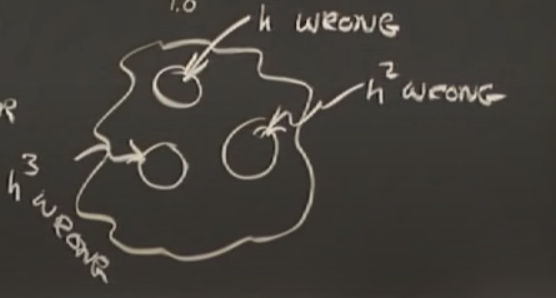 1.0
h WRONG
h² WRONG
R
h³ WRONG